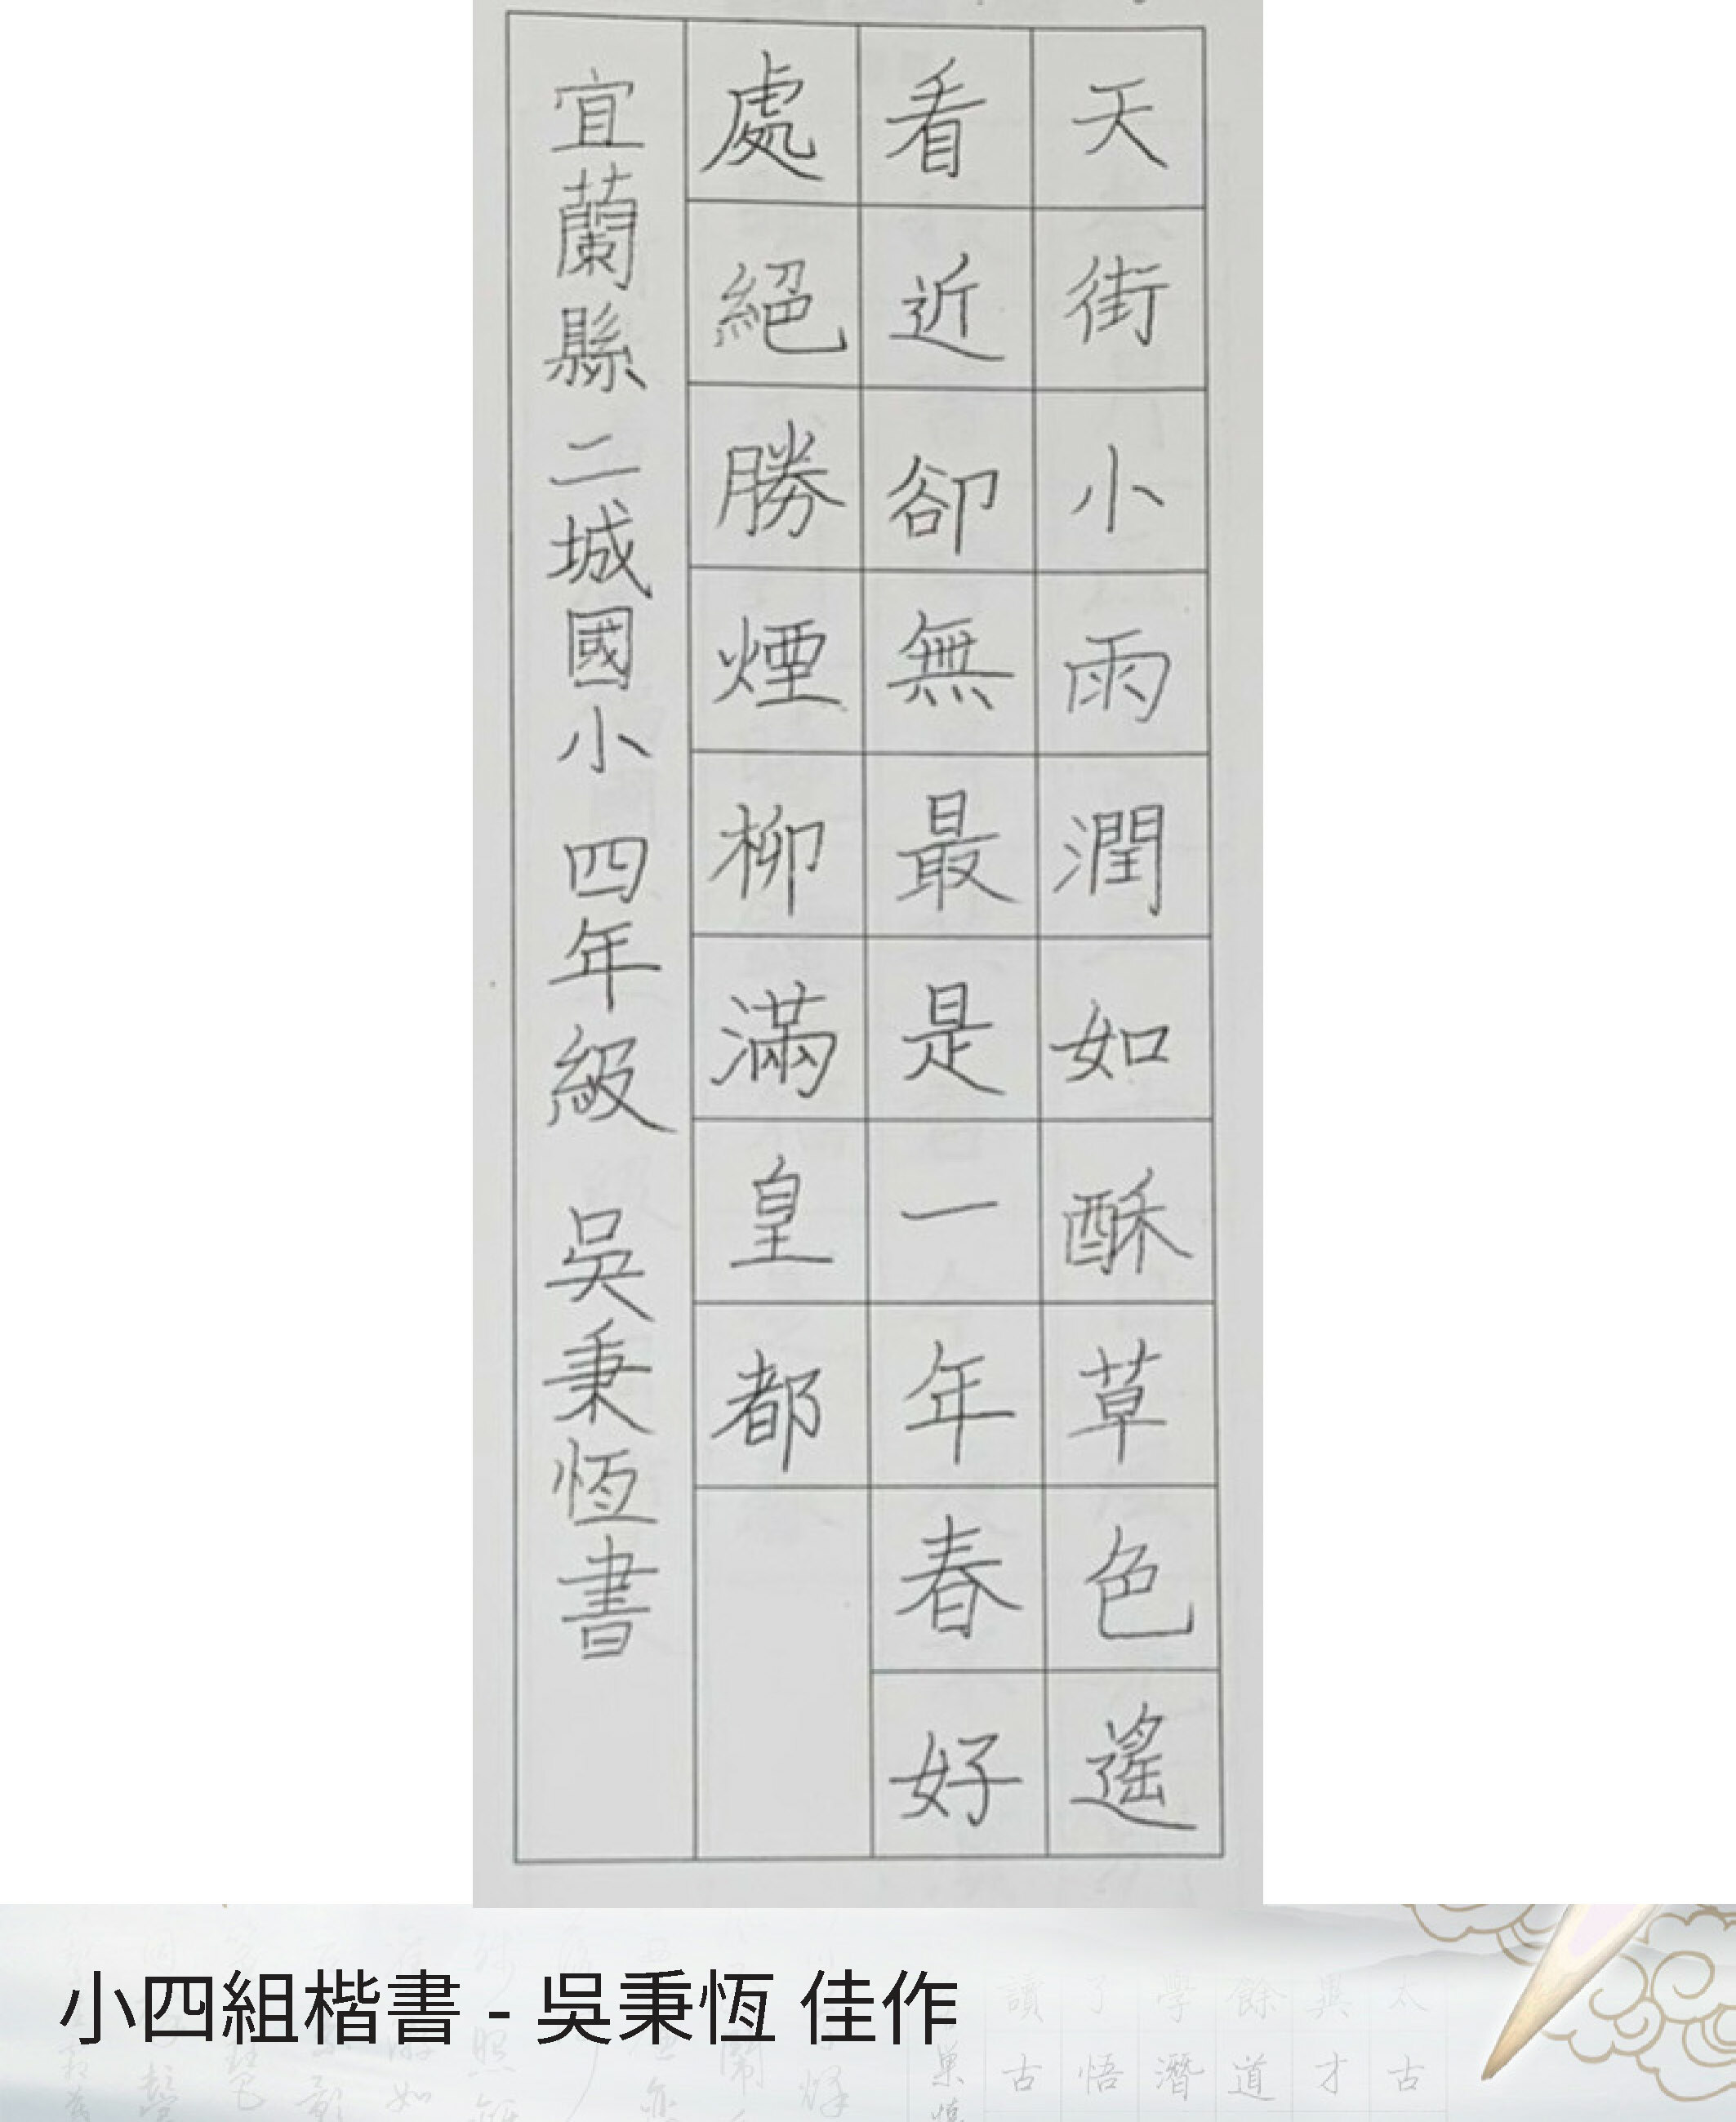 天街小雨潤如酥草色遙
看近卻無最是一年春好
處絕勝煙柳滿皇都
宜蘭縣 二城國小 四年級 吳秉恆書
小四組楷書 - 吳秉恆 佳作
讀了學餘與太
古悟潛道才古